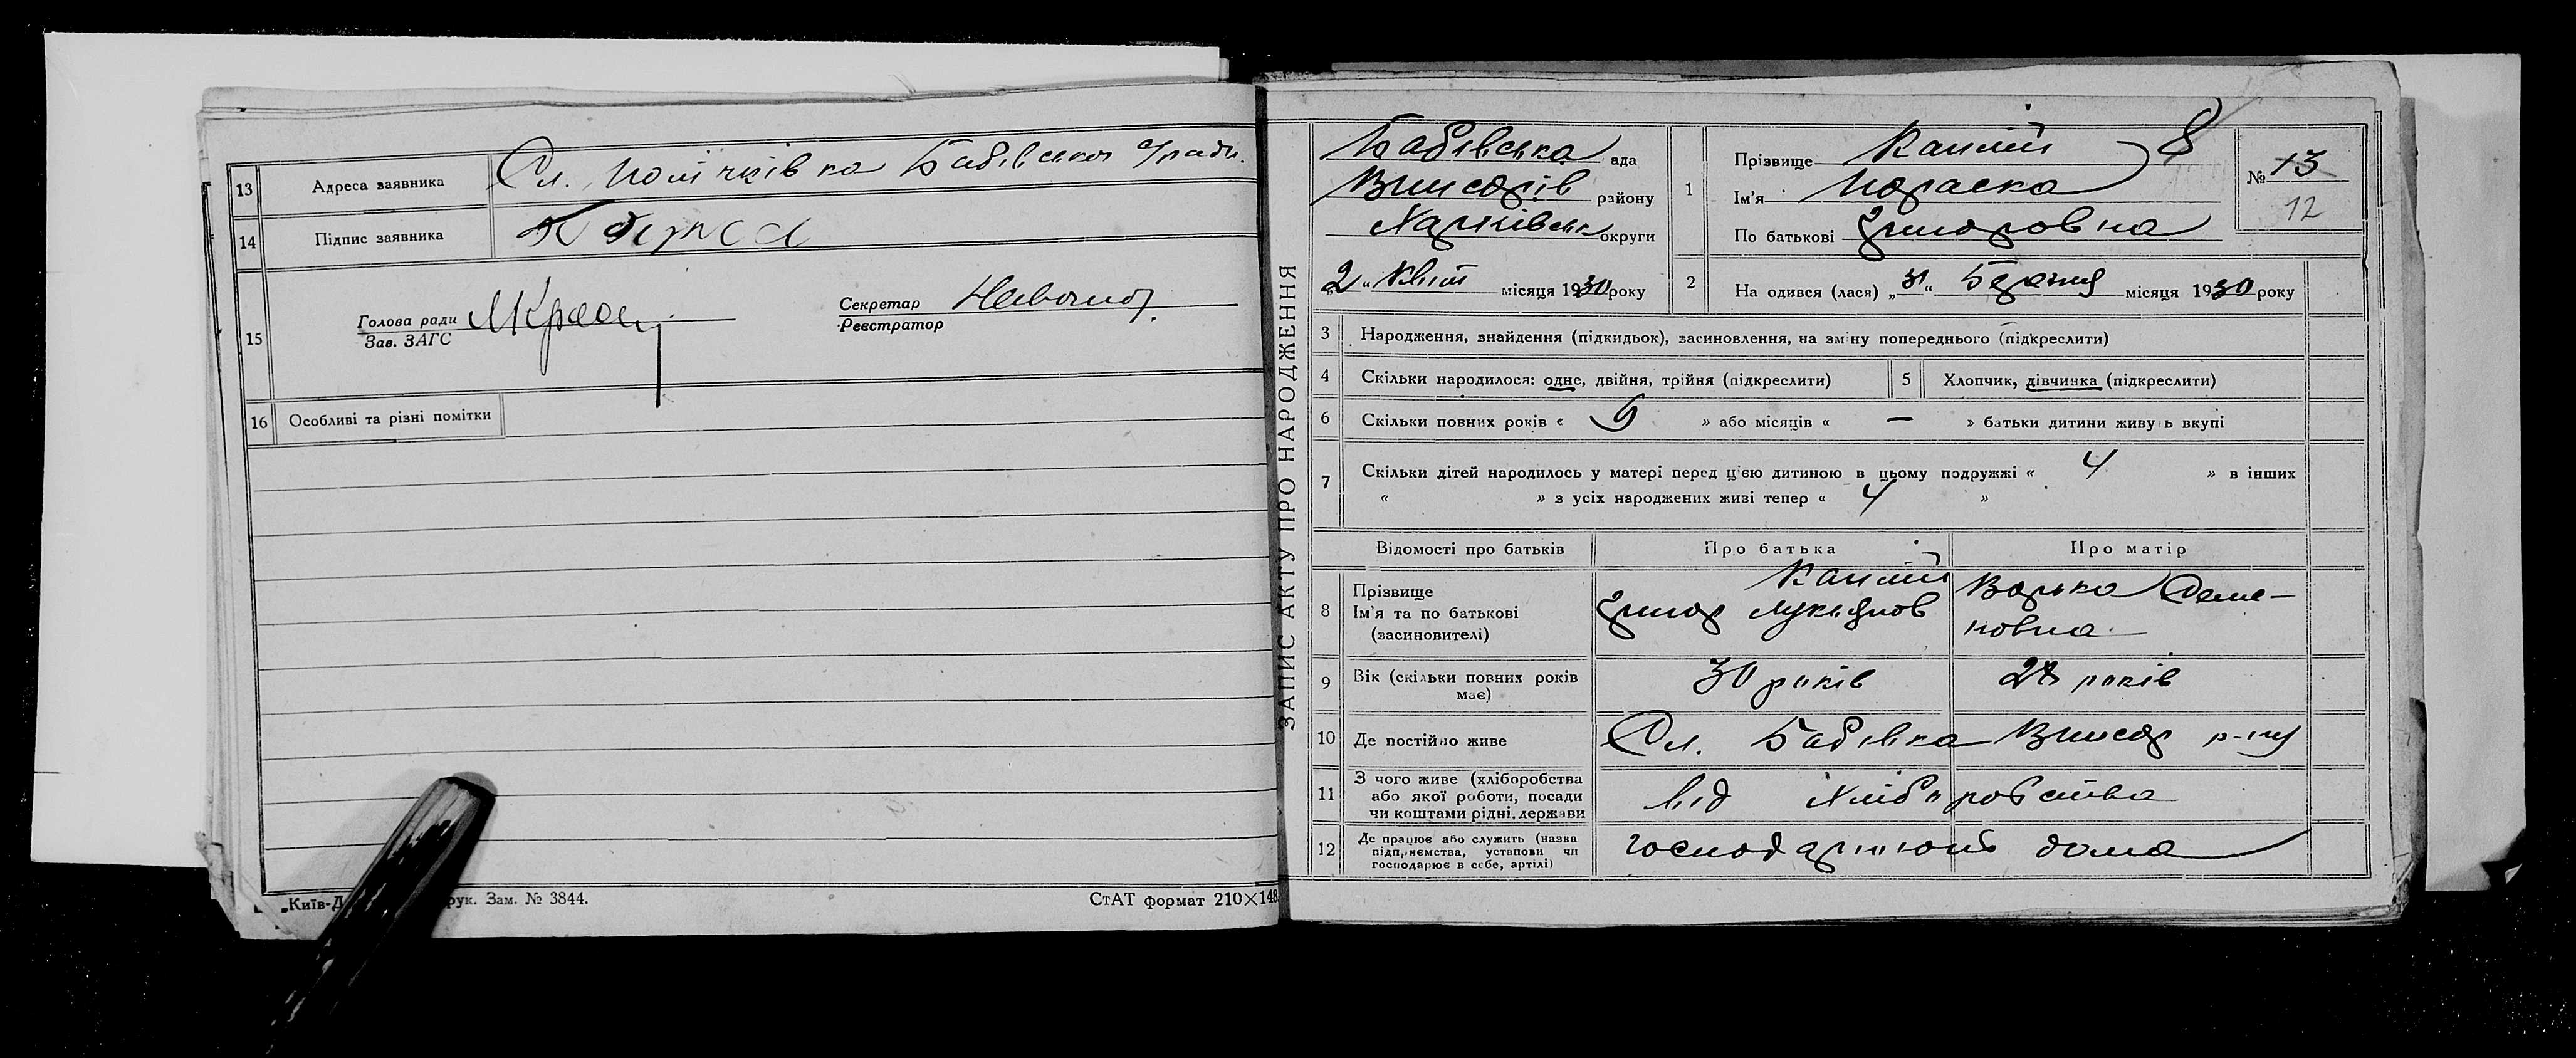 13 Адреса заявника Сл. Бабаївської с/ради.
14 Підпис заявника
15 Голова ради
Зав. ЗАГС
Секретар
Реєстратор
16 Особливі та різні помітки
„Київ-Д рук. Зам. № 3844.
СтАТ формат 210×148
ЗАПИС АКТУ ПРО НАРОДЖЕННЯ
ада
району
Харківськ округи
„2„ Квіт місяця 1930 року
1 Прізвище
Ім'я Параска
По батькові Григоровна
№ 13
12
8
2 На одився (лася) „31“ Березня місяця 1930 року
3 Народження, знайдення (підкидьок), засиновлення, на зміну попереднього (підкреслити)
4 Скільки народилося: одне, двійня, трійня (підкреслити) 5 Хлопчик, дівчинка (підкреслити)
6 Скільки повних років « 9 » або місяців « — » батьки дитини живу ь вкупі
7 Скільки дітей народилось у матері перед цією дитиною в цьому подружжі « 4 » в інших
« » з усіх народжених живі тепер « 4 »
Відомості про батьків Про батька Про матір
8 Прізвище
Ім'я та по батькові Григор Лукьянов Варька Семе-
(засиновителі) новна
9 Вік (скільки повних років 30 років 28 років
має)
10 Де постійно живе Сл. р-ну
11 З чого живе (хліборобства
або якої роботи, посади від хліборобства
чи коштами рідні, держави
12 Де працює або служить (назва господарюють дома
підприємства, установи чи
господарює в себе, артілі)